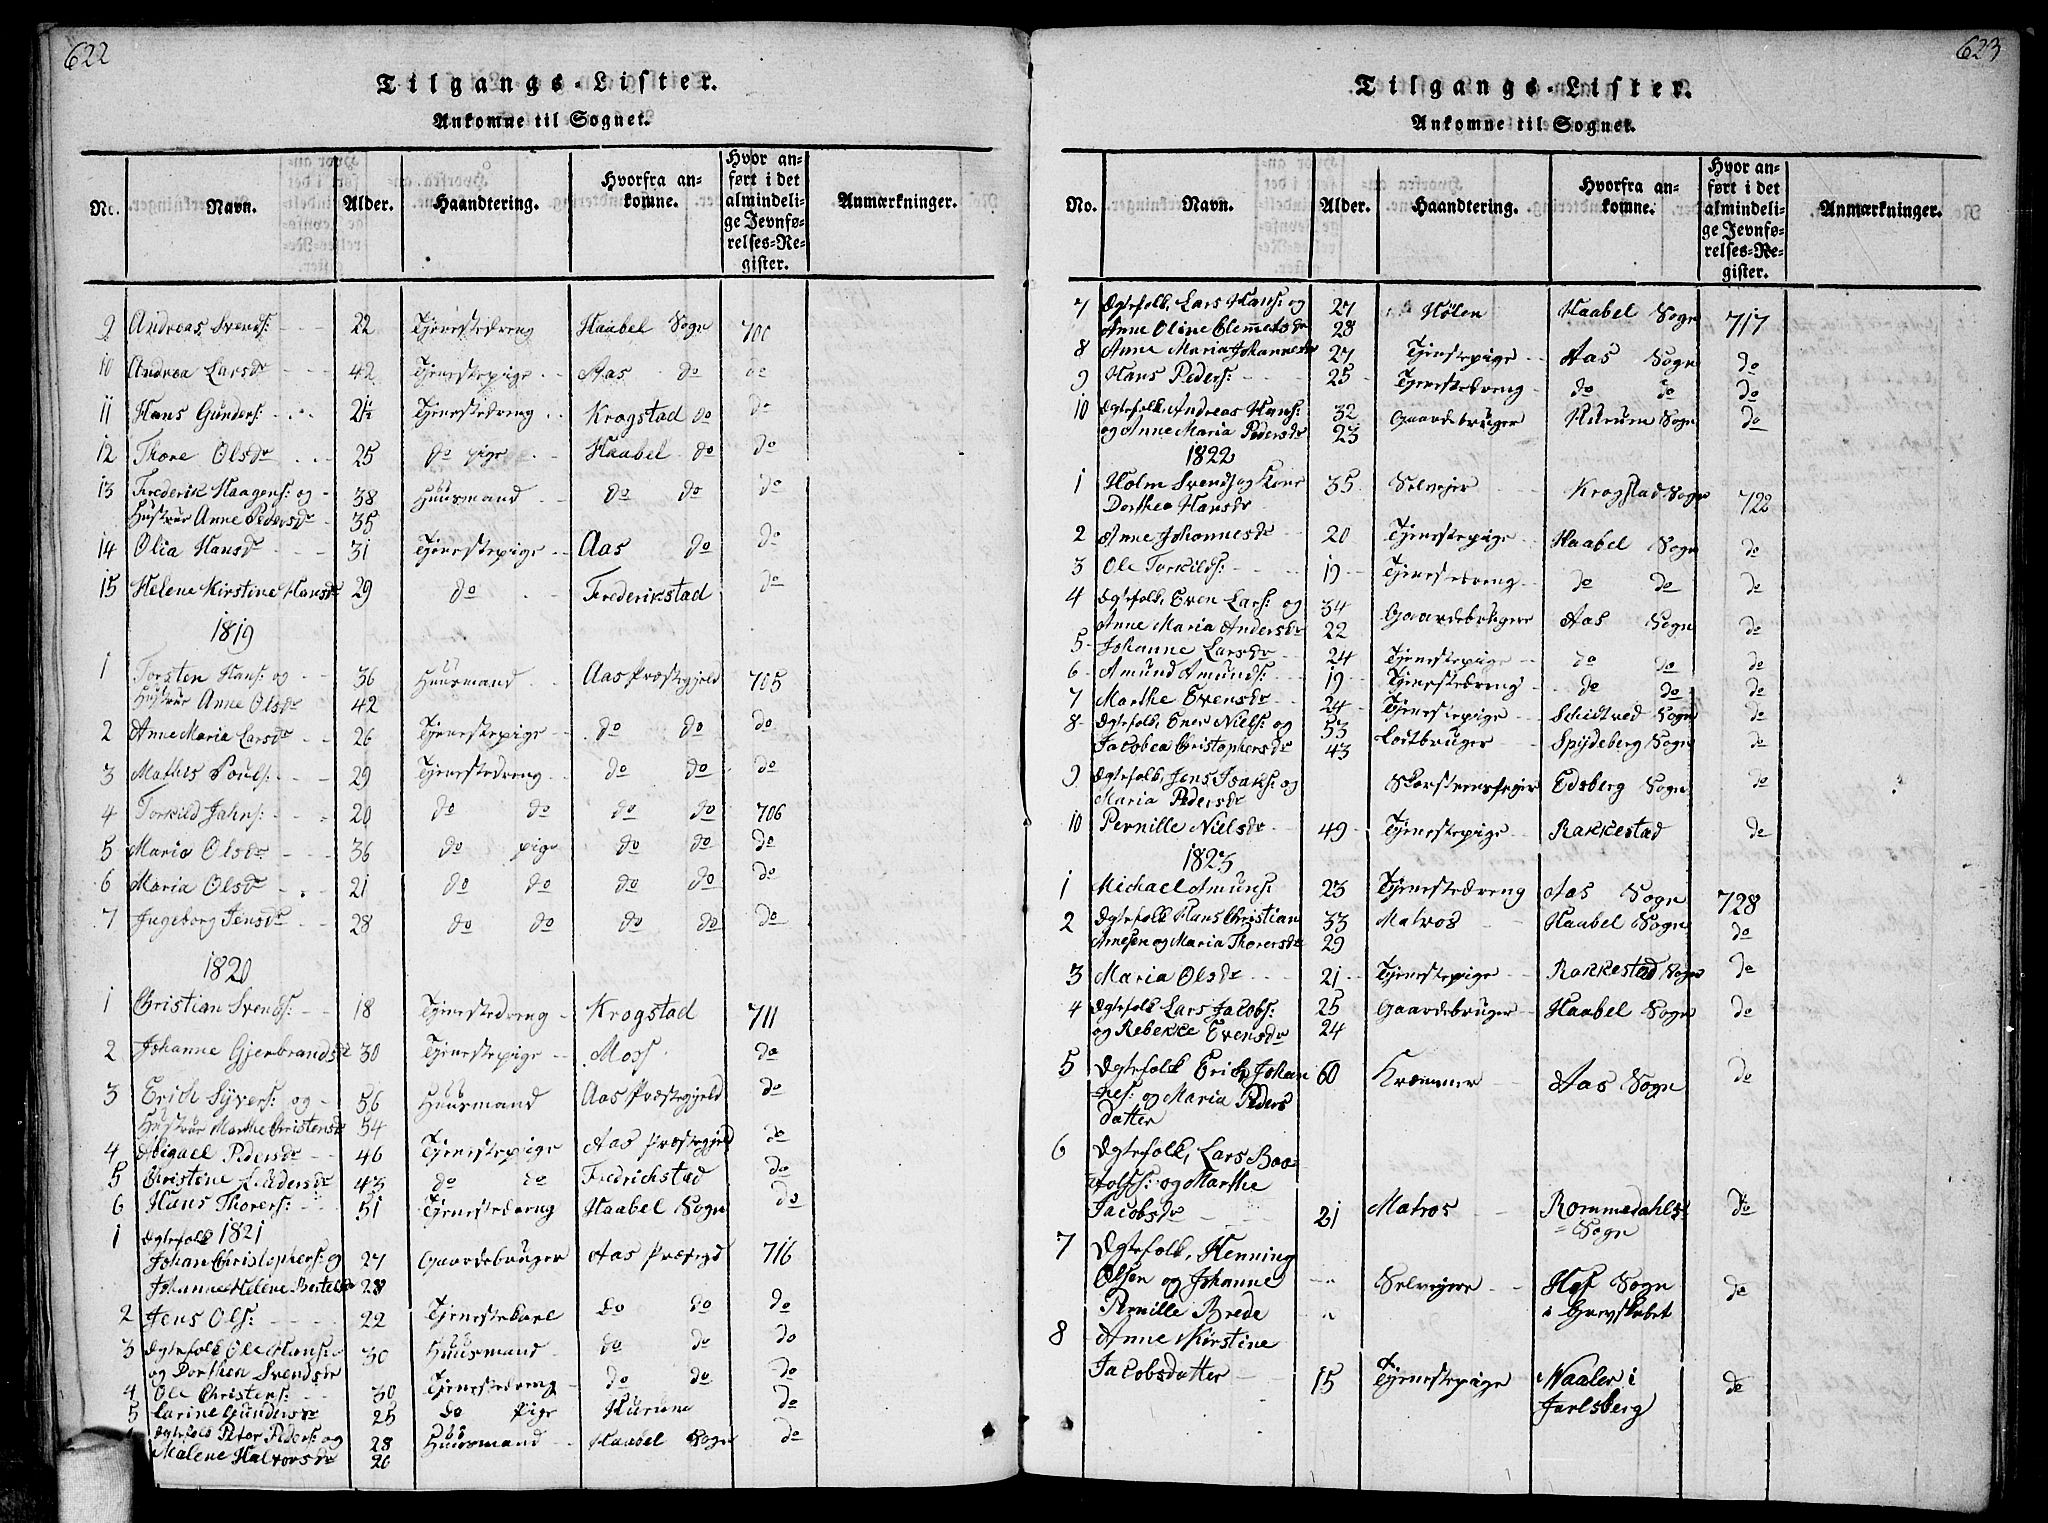 622
Tilgangs-Lister.
Ankomne til Sognet.
No. Navn. Alder. Haandtering. Hvorfra ankomne. Hvor anført i det almindelige Jevnførelses-Register. Anmærkninger.
9 Andreas Svends: 22 Tjenestedreng Haabel Sogn 700
10 Andrea Larsdr 42 Tjenestepige Aas do do
11 Hans Gunders: Tjenestedreng Krogstad do do
12 Thore Olsdr 25 do pige Haabel do do
13 Frederik Haagens: og 38 Huusmand do do do
Hustrue Anne Pedersdr 35
14 Olia Hansdr 31 Tjenestepige Aas do do
15 Helene Kirstine Hansdr 29 do Frederikstad do
1819
1 Torsten Hans: og 36 Huusmand Aas Præstegjeld 705
Hustrue Anne Olsdr 42
2 Anne Maria Larsdr 26 Tjenestepige do do do
3 Mathis Pouls: 29 Tjenestedreng do do do
4 Torkild Jahns: 20 do do do do 706
5 Maria Olsdr 36 do pige do do do
6 Maria Olsdr 21 do do do do do
7 Ingeborg Jensdr 28 do do do do do
1820
1 Christian Svends: 18 Tjenestedreng Krogstad 711
2 Johanne Gjerbrandsdr 30 Tjenestepige Moss do
3 Erich Syvers: og 56 Huusmand Aas Præstegjeld do
Hustrue Marthe Christensdr 54
4 Abigael Pedersdr 46 Tjenestepige Aas Præstegjeld do
5 Christene Andersdr 43 do do Fredrichstad do
6 Hans Thorers: 51 Tjenestedreng Haabel Sogn do
1 Egtefolk 1821
Johan Christophers: og 27 Gaardebruger Aas Præstegd 716
Johanne Helene Bertelsdr 28
2 Jens Ols: 22 Tjenestekarl do do do
3 Egtefolk Ole Hans: 30 Huusmand do do do
og Dorthea Svendsdr
4 Ole Christens: 30 Tjenestedreng do do do
5 Carine Gundersdr 25 do pige Hurum do
Egtefolk Peter Peders: og 28 Huusmand Haabel Sogn do
Malene Halvorsdr 26
623
Tilgangs-Lister.
Ankomne til Sognet.
No. Navn. Alder. Haandtering. Hvorfra ankomne. Hvor anført i det almindelige Jevnførelses-Register. Anmærkninger.
7 Egtefolk, Lars Hans: og 27 Hølen Haabel Sogn 717
Anne Oline Clemetsdr 28
8 Anne Maria Johannesdr 27 Tjenestepige Aas Sogn do
9 Hans Peders: 25 Tjenestedreng do do do
10 Egtefolk, Andreas Hans: 32 Gaardebruger Hurum Sogn do
og Anne Maria Pedersdr 23
1822
1 Holm Svends: og Kone 35 Selvejer Krogstad Sogn 722
Dorthea Hansdr
2 Anne Johannesdr 20 Tjenestepige Haabel Sogn do
3 Ole Torkilds: 19 Tjenestedreng do do do
4 Egtefolk, Even Lars: og 34 Gaardebrugere Aas Sogn do
Anne Maria Andersdr 22
5 Johanne Larsdr 24 Tjenestepige do do do
6 Amund Amunds: 19 Tjenestedreng do do do
7 Marthe Evensdr 24 Tjenestepige Schidtved Sogn do
8 Egtefolk, Ener Niels: og 53 Lodtbruger Spydeberg Sogn do
Jacobea Christophersdr 43
9 Egtefolk, Jens Isaks: og Skorsteensfejer Edsberg Sogn do
Maria Pedersdr
10 Pernille Nielsdr 49 Tjenestepige Rakkestad do
1823
1 Michael Amuns: 23 Tjenestedreng Aas Sogn 728
2 Egtefolk Hans Christian 33 Matros Haabel Sogn do
Arnesen og Maria Thorersdr 29
3 Maria Olsdr 21 Tjenestepige Rakkestad Sogn do
4 Egtefolk Lars Jacobs: 25 Gaardebruger Haabel Sogn do
og Rebekke Evensdr 24
5 Egtefolk Erich Johan 60 Kræmmer Aas Sogn do
=nes: og Maria Peders
datter
6 Egtefolk, Lars Boo=
=olfs: og Marthe
Jacobsdr 21 Matros Rommedahls= do
= Sogn
7 Egtefolk, Henning
Olsen og Johanne Selvejere Hof Sogn do
Pernille Brede i Grevskabet
8 Anne Kirstine
Jacobsdatter 15 Tjenestepige Waaler i do
Jarlsberg